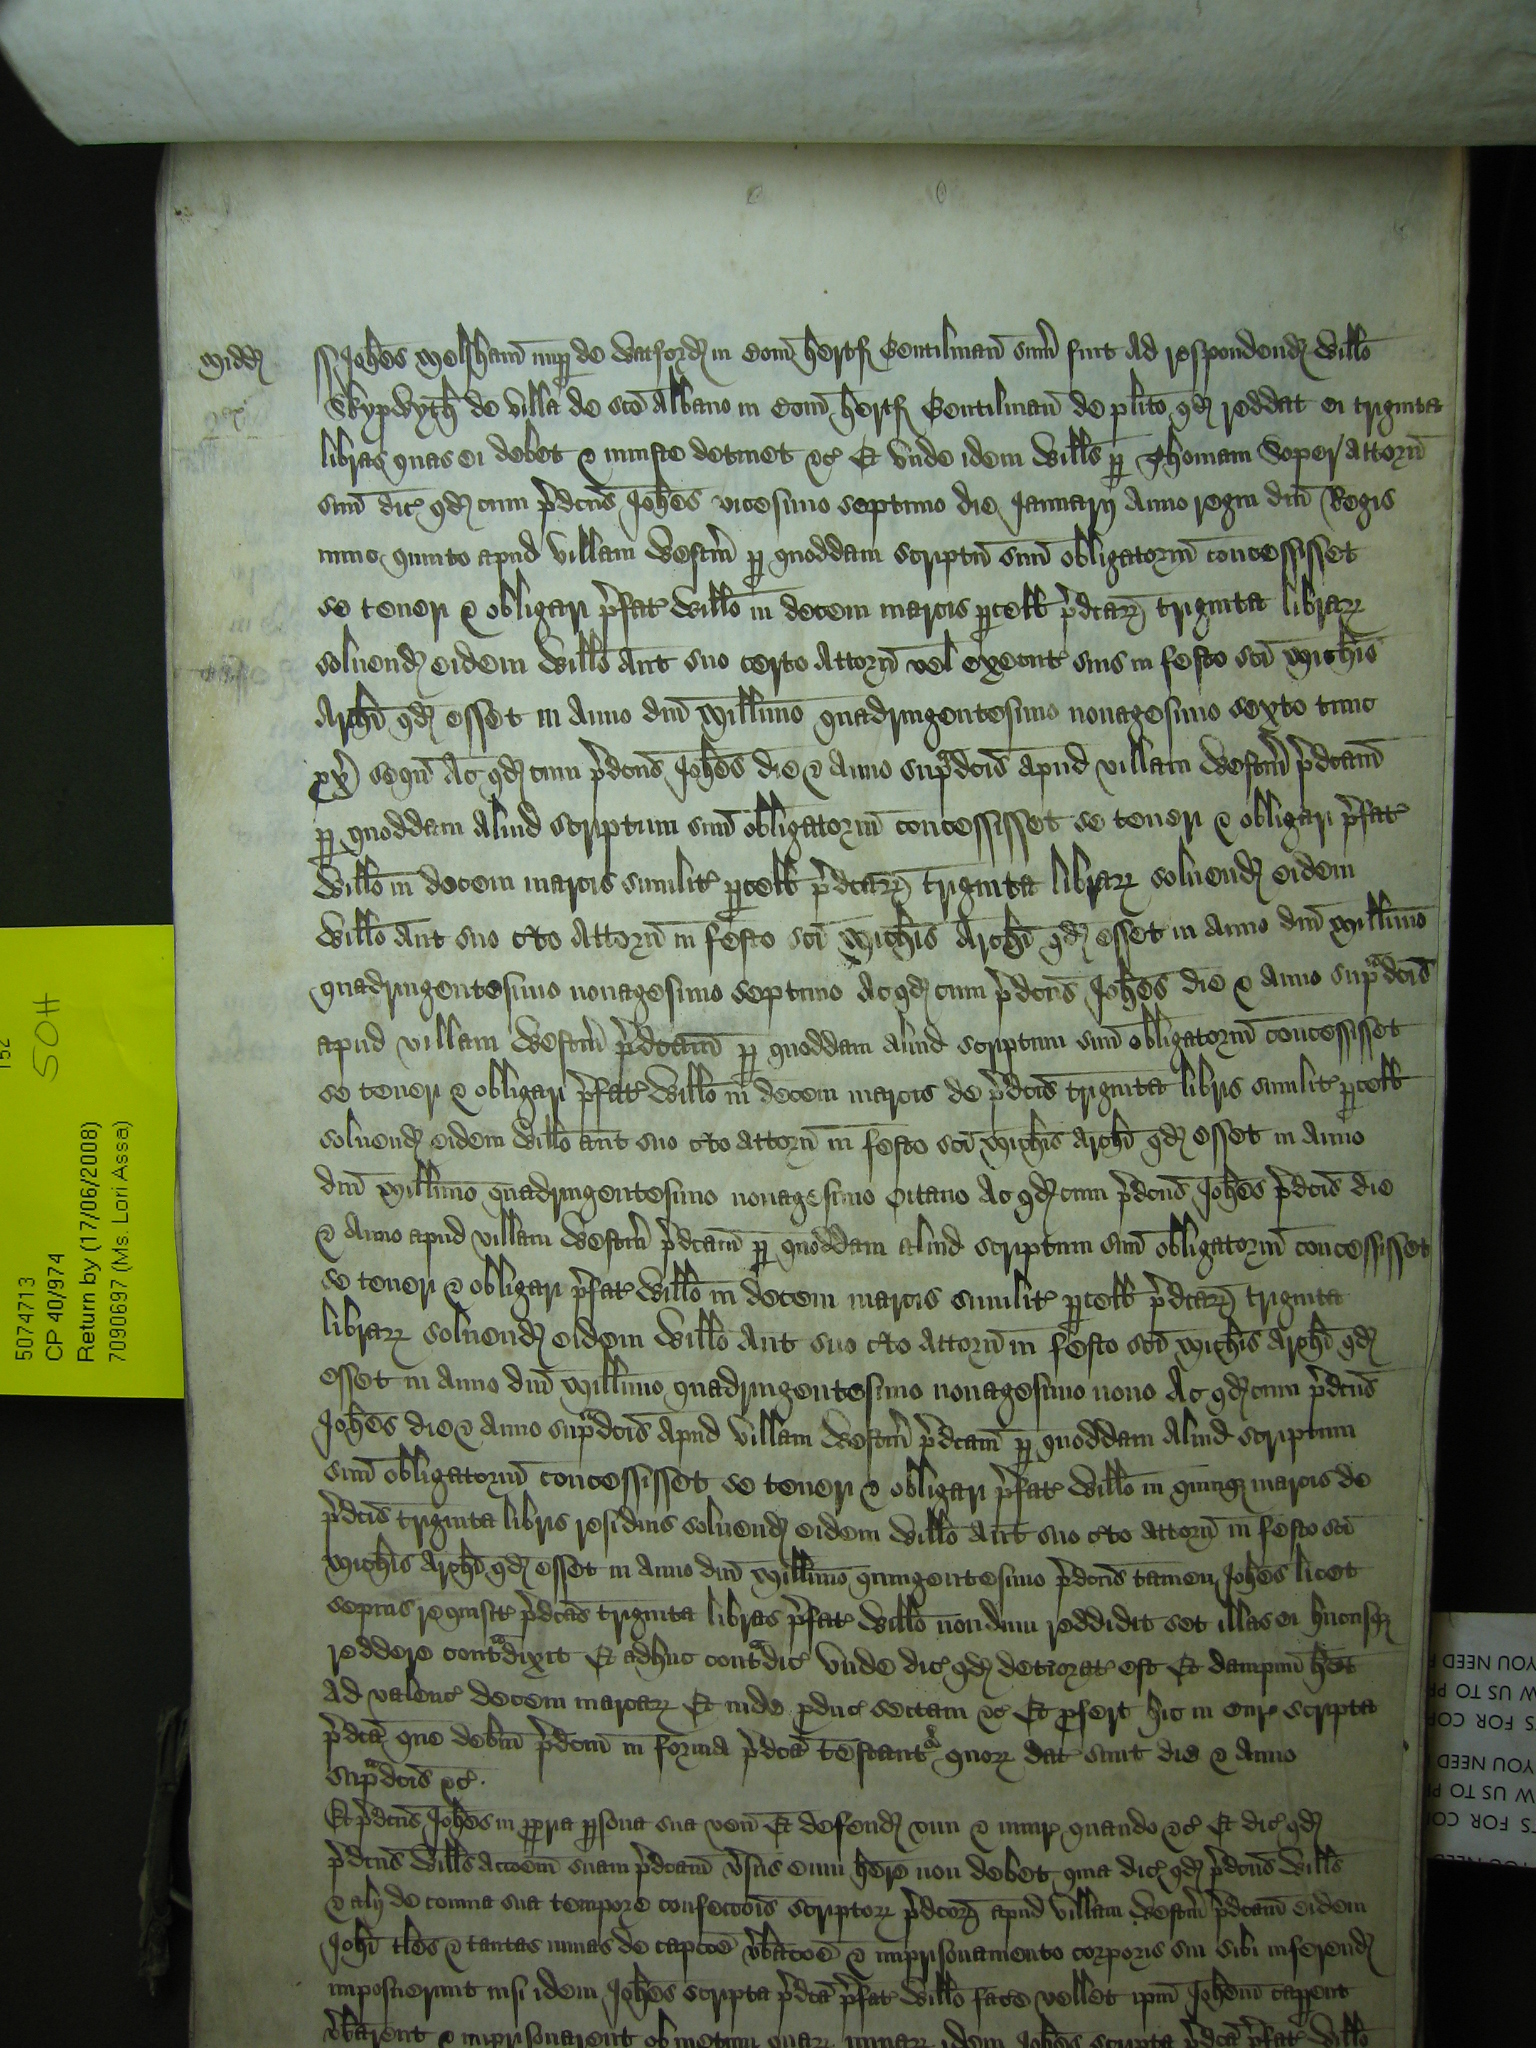 Midd
ss Johes Melsham nup de Watford in Com Hertf Gentilman sum fuit ad respondend Willo
Skypwyth de villa de sco Albano in Com Hertf Gentilman de plito qd reddat ei triginta
libras quas ei debet & iniuste detinet &c Et unde idem Wills p Thomam Soper Attorn
suu dic qd cum pdcus Johes vicesimo septimo die Januarij Anno regni dni Regis
nunc quinto apud villam Westm p quoddam scriptu suu obligatoriu concessisset
se teneri & obligari pfat Willo in decem marcis pcell pdcar triginta librar
solvend eidem Willo aut suo certo Attorn vel execut suis in festo sci Michis
Archi qd esset in Anno dni Millimo quadringentesimo nonagesimo sexto tunc
px sequ Ac qd cum pdcus Johes die & Anno supadcis apud villam Westm pdcam
p quoddam aliud scriptum suu obligatoriu concessisset se teneri & obligari pfat
Willo in decem marcis similit pcell pdcar triginta librar solvend eidem
Willo aut suo cto Attorn in festo sci Michis Archi qd esset in Anno dni Millimo
quadringentesimo nonagesimo septimo Ac qd cum pdcus Johes die & Anno supadcis
apud villam Westm pdcam p quoddam aliud scriptum suu obligatoriu concessisset
se teneri & obligari pfat Willo in decem marcis de pdcis triginta libris similit pcell
solvend eidem Willo aut suo cto attorn in festo sci Michis Archi qd esset in Anno
dni Millimo quadringentesimo nonagesimo octavo Ac qd cum pdcus Johes pdcis die
& Anno apud villam Westm pdcam p quoddam aliud scriptum suu obligatoriu concessisset
se teneri & obligari pfat Willo in decem marcis similit pcell pdcar triginta
librar solvend eidem Willo aut suo cto attorn in festo sci Michis Archi qd
esset in Anno dni Millimo quadringentesimo nonagesimo nono Ac qd cum pdcus
Johes die & Anno supadcis apud villam Westm pdcam p quoddam aliud scriptum
suu obligatoriu concessisset se teneri & obligari pfat Willo in quinq marcis de
pdcis triginta libris residuis solvend eidem Willo aut suo cto attorn in festo sci
Michis Archi qd esset in Anno dni Millimo quingentesimo pdcus tamen Johes licet
sepius requisit pdcas triginta libras pfat Willo nondum reddidit set illas ei hucusq
reddere contadixit Et adhuc contadic Unde dic qd deteriorat est Et dampnu het
ad valenc decem marcar Et inde pduc sectam &c Et pfert hic in Cur scripta
pdca que debm pdcm in forma pdca testant quor dat sunt die & Anno
supadcis &c
Et pdcus Johes in ppria psona sua ven Et defend vim & iniur quando &c Et dic qd
pdcus Wills accoem suam pdcam vsus eum here non debet quia dic qd pdcus Wills
& alij de covina sua tempore confeccois scriptor pdcor apud villam Westm pdcam eidem
Johi tles & tantas minas de capcoe vbacoe & imprisonamento corporis sui sibi inferend
imposuerunt nisi idem Johes scripta pdca pfat Willo face vellet ipm Johem capent
vbarent & imprisonarent ob metum quar minar idem Johes scripta pdca pfat Willo
152
50H
5074713
CP 40/974
Return by (17/06/2008)
7090697 (Ms. Lori Assa)
YOU NEED
W US TO
S FOR COP
YOU NEED
W US TO PR
TS FOR COP